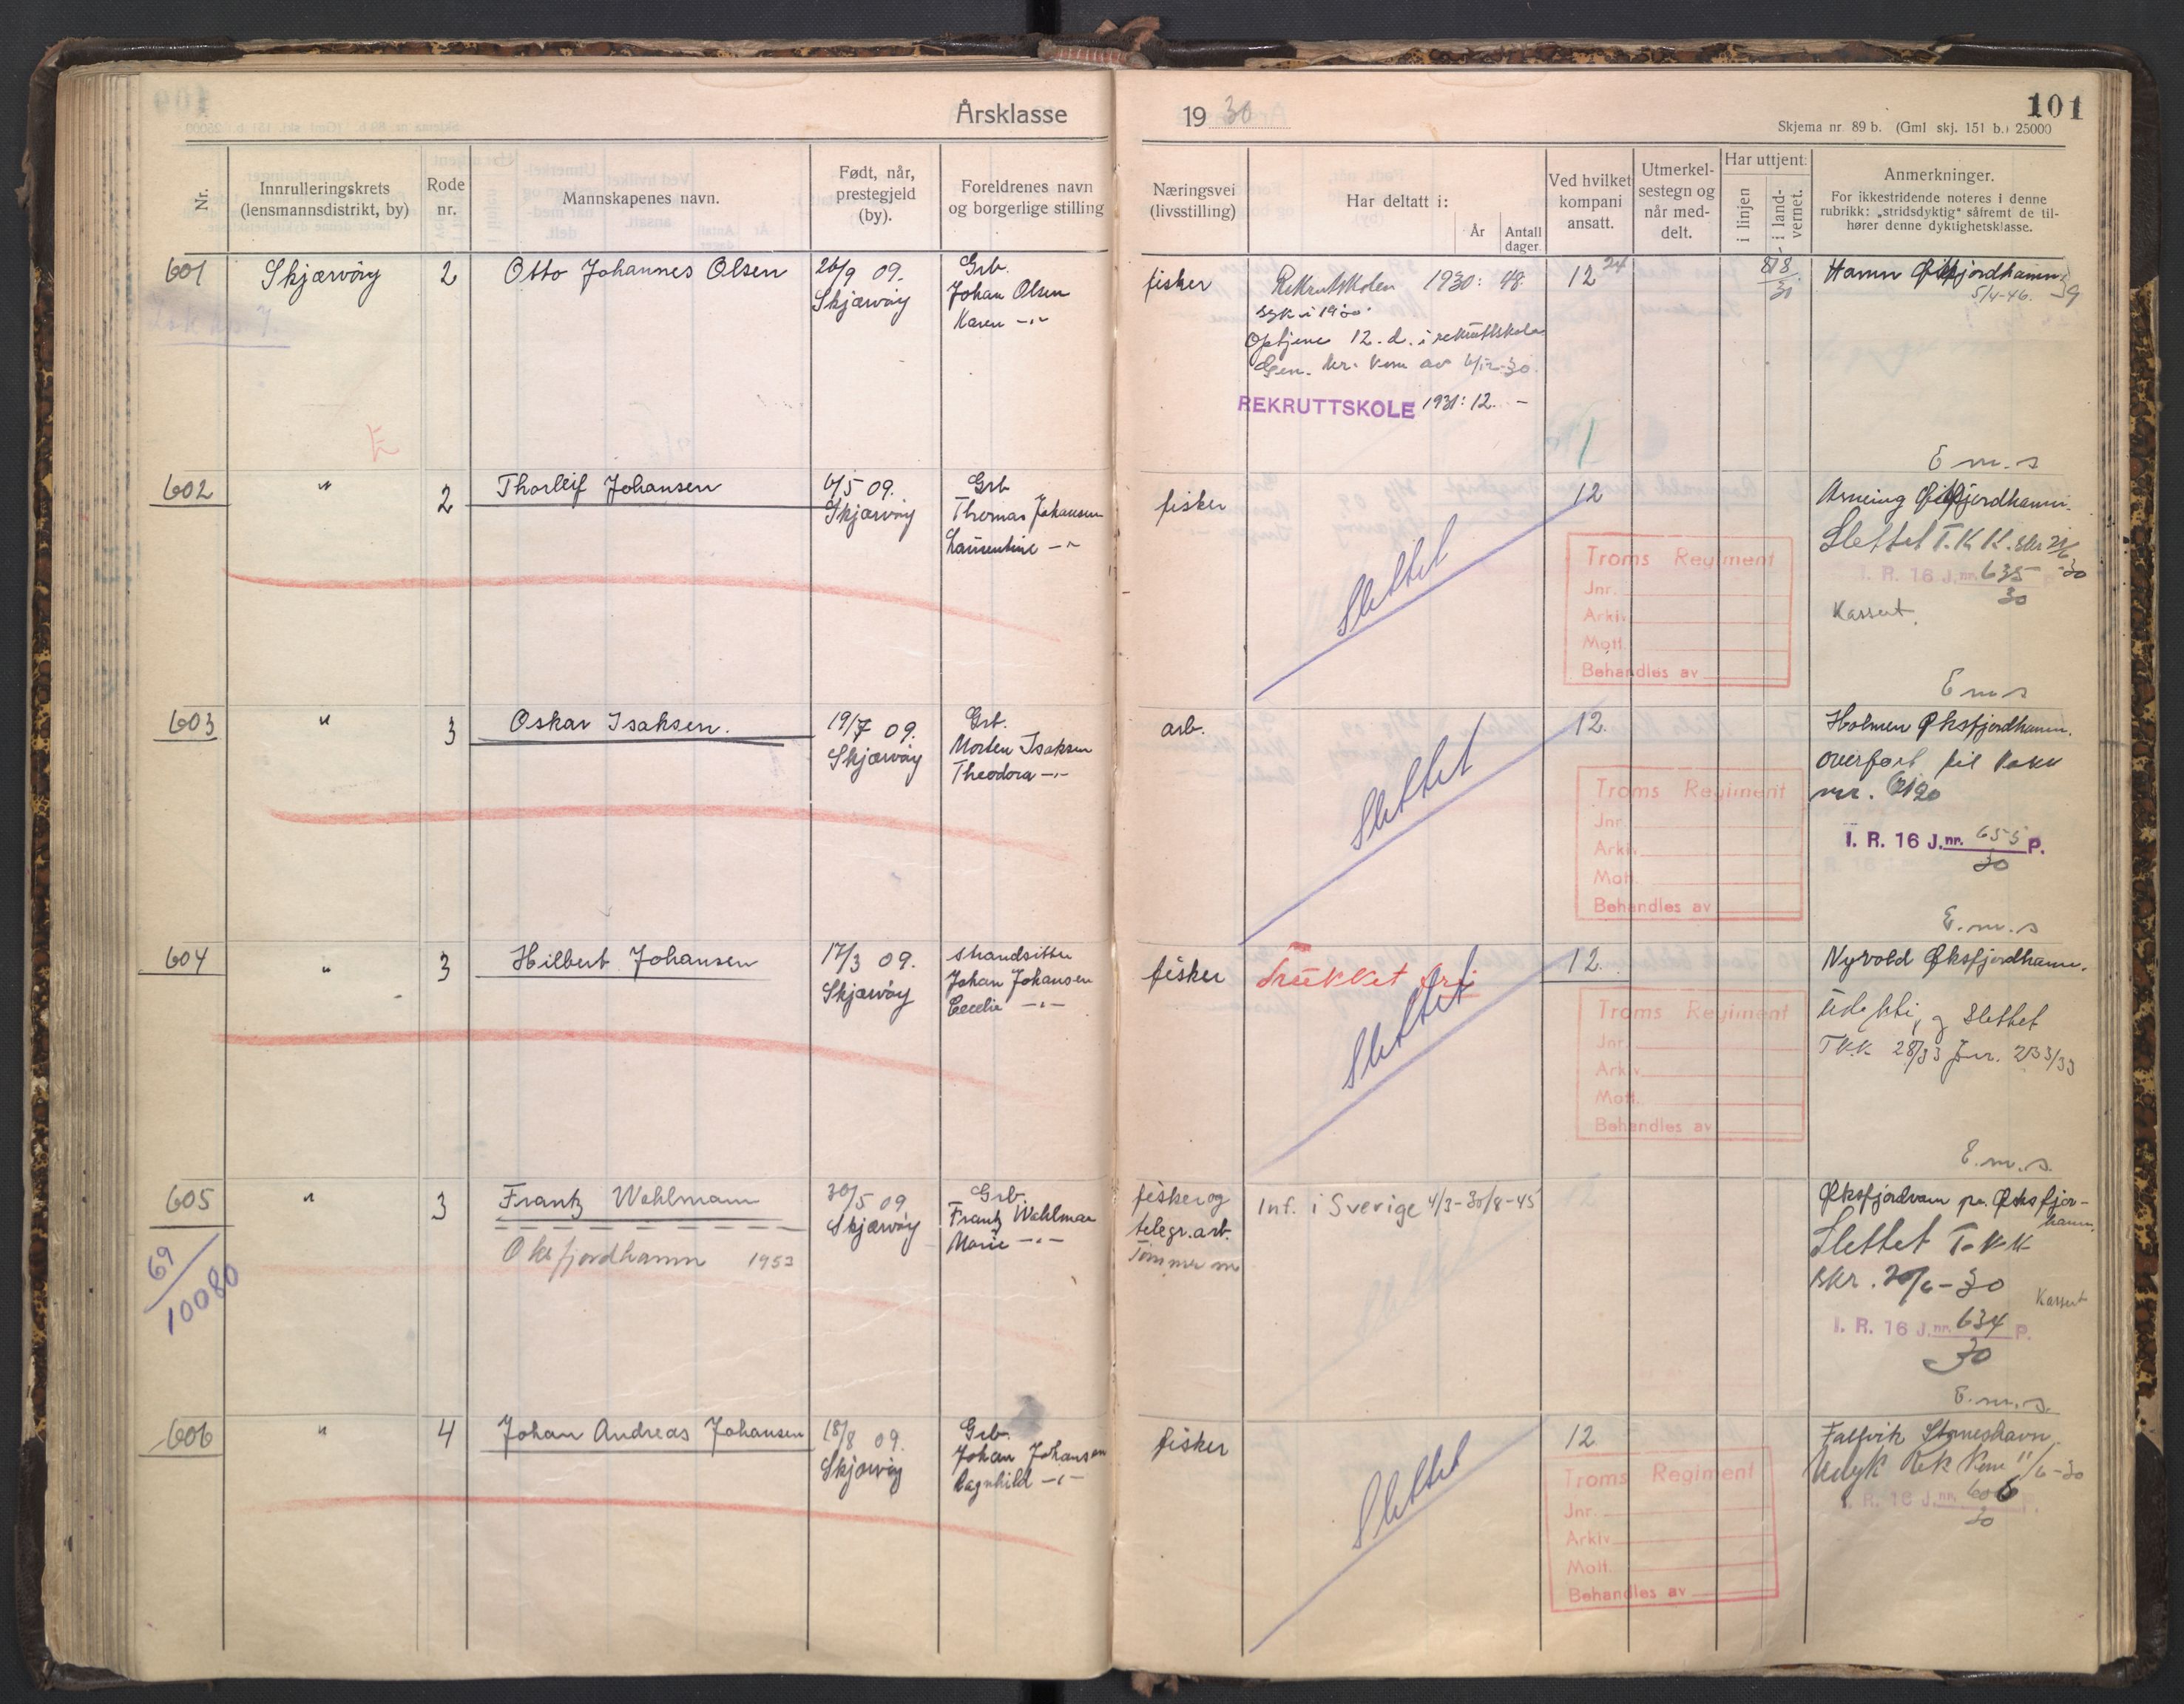 Årsklasse
19 30
101
Skjema nr. 89 b. (Gml. skj. 151 b.) 25000
Nr.
Innrulleringskrets
(lensmannsdistrikt, by)
Rode
nr.
Mannskapenes navn.
Født, når,
prestegjeld
(by).
Foreldrenes navn
og borgerlige stilling
Næringsvei
(livsstilling)
Har deltatt i:
År
Antall
dager.
Ved hvilket
kompani
ansatt.
Utmerkel-
sestegn og
når med-
delt.
Har uttjent:
i linjen
i land-
vernet.
Anmerkninger.
For ikkestridende noteres i denne
rubrikk: „stridsdyktig“ såfremt de til-
hører denne dyktighetsklasse.
601
Skjærvöy
2
Otto Johannes Olsen
26/9 09.
Skjærvöy
Grb.
Johan Olsen
Karen -"-
fisker
Rekrutskolen 1930: 48.
syk i 1930.
Optjene 12. d. i rekruttskole
Gen. kr. kom av 6/12-30.
REKRUTTSKOLE 1931: 12. -
12 24
8/8
30
Hamn
5/4-46.
E
602
"
2
Thorleif Johansen
6/5 09.
Skjærvöy
Grb
Thomas Johansen
Laurentine -"-
fisker
Slettet
12
Troms Regiment
Jnr.
Arkiv
Mott.
Behandles av
E m. s
Slettet T.K.K. skr 21/6 -30
I. R. 16 J.nr. 635 P.
30
Kassert.
603
"
3
Oskar Isaksen.
19/7 09.
Skjærvöy
Grb.
Morten Isaksen
Theodora -"-
arb.
Slettet
12.
Troms Regiment
Jnr.
Arkiv
Mott.
Behandles av
E m s
Holmen Øksfjordhamn.
overført til Vakk
nr.
I. R. 16 J.nr. 655 P.
30
604
"
3
Hilbert Johansen
17/3 09.
Skjærvöy
strandsitter
Johan Johansen
Cecelie -"-
fisker
Trukket fri
Slettet
12.
Troms Regiment
Jnr.
Arkiv
Mott.
Behandles av
E. m. s
Nyvold Øksfjordhamn.
og Slettet
TKK. 28/33 Jnr. 233/33
605
"
3
Frantz Wahlmann
Oksfjordhamn 1953
30/5 09
Skjærvöy
Grb.
Frantz Wahlman
Marie -"-
fisker og
telegr.arb.
Tømmer m
Int. i Sverige 4/3-30/8-45
69
10080
E. m. s.
Øksfjordvann pr. Øksfjor-
hamn.
Slettet T.K.K
skr. 20/6-30
Kassert
I. R. 16 J.nr. 634 P.
30
606
"
4
Johan Andreas Johansen
18/8 09.
Skjærvöy
Grb.
Johan Johansen
Ragnhild -"-
fisker
Slettet
12
Troms Regiment
Jnr.
Arkiv
Mott.
Behandles av
E. m. s.
Falsvik
Udyk Rek Kom 11/6-30
I. R. 16 J.nr. 606 P.
30